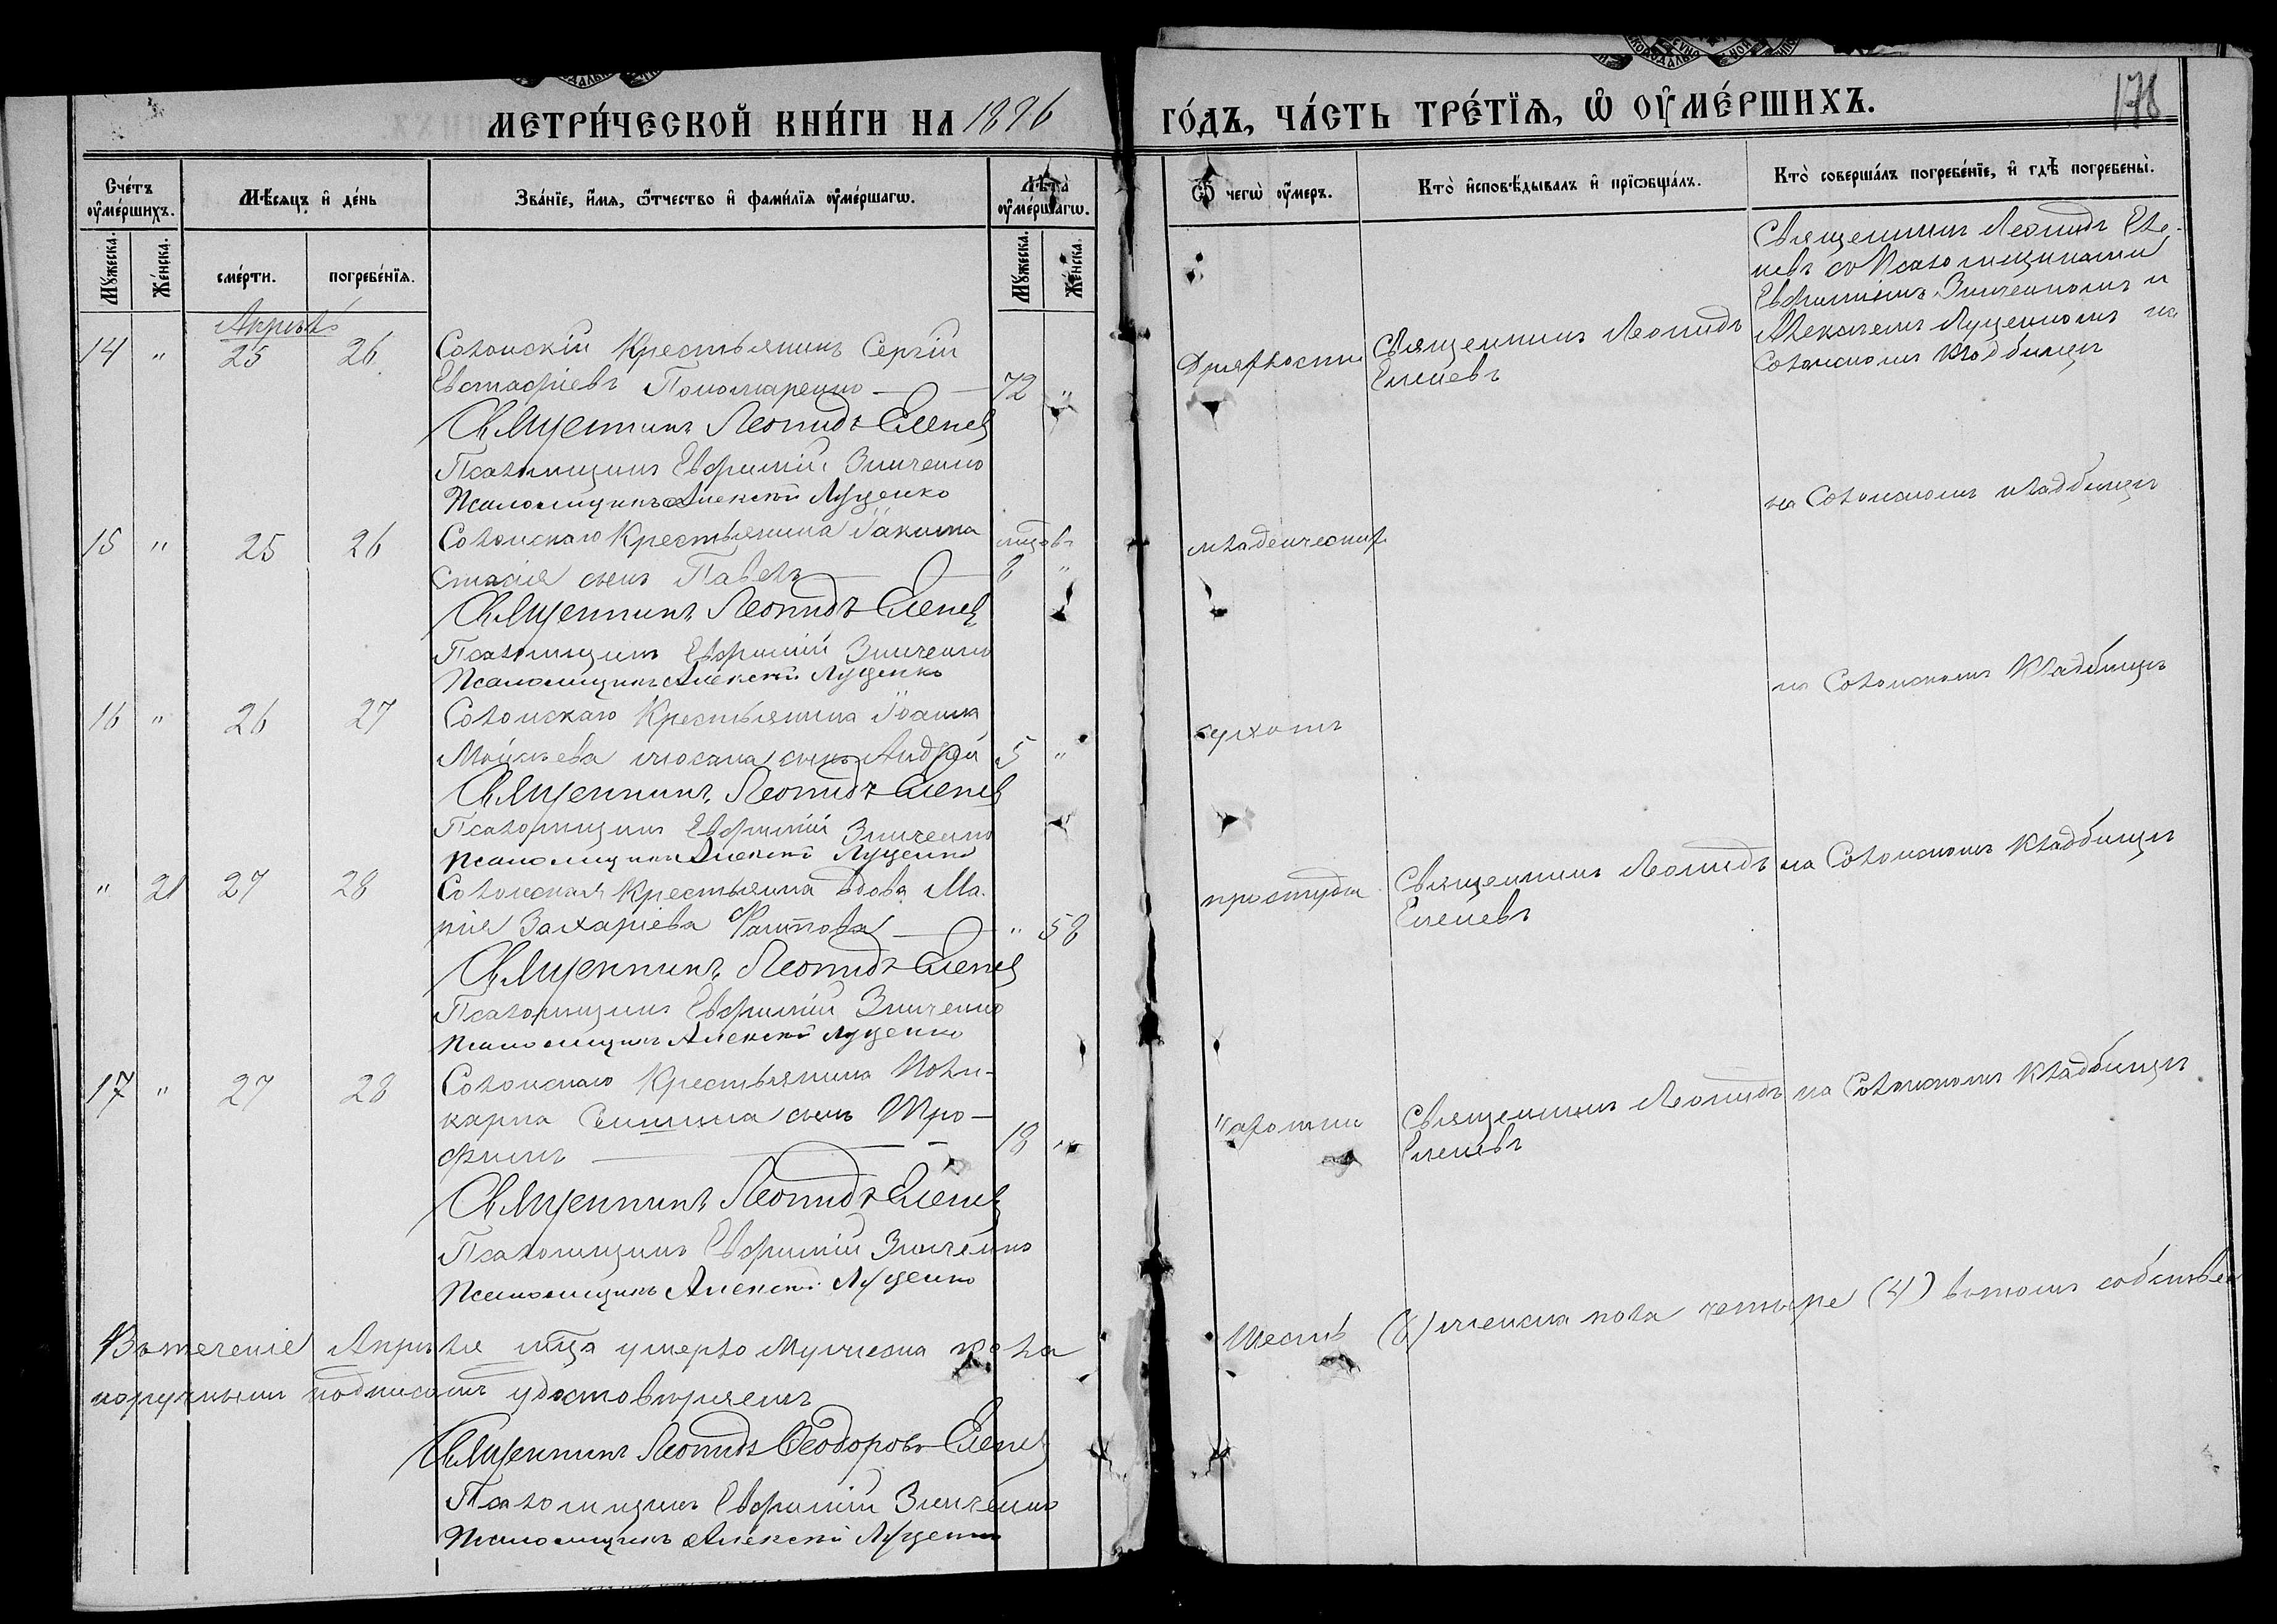 МЕТРИ́ЧЕСКОЙ КНИ́ГИ НА 1896 ГО́ДЪ, ЧА́СТЬ ТРЕ́ТЇѦ, Ѡ ОУМЕ́РШИХЪ.
178
Сче́тъ оуме́ршихъ.
Мѣ́сяцъ и де́нь
Зва́нїе, и́мя, ѻ́тчество и фами́лїя оуме́ршагѡ.
Лѣ́та оуме́ршагѡ.
Ѿ чегѡ̀ оу́меръ.
Кто̀ и҆сповѣ́дывалъ и҆ прїѡбща́лъ.
Кто̀ соверша́лъ погребе́нїе, и҆ гдѣ̀ погребены̀.
Мꙋ́жеска.
Же́нска.
сме́рти.
погребе́нїя.
Мꙋ́жеска.
Же́нска.
Апрѣль
14 " 25 26 Солонскій Крестьянинъ Сергій
Евстафіевъ Пономаренко 72 "
Священникъ Леонидъ Еленев
Псаломщикъ Евфимій Зинченко
Псаломщикъ Алексій Луценко
Дряхлости
Священникъ Леонидъ
Еленевъ
Священникъ Леонидъ Еле-
невъ съ Псаломщиками
Евфиміемъ Зинченкомъ и
Алексіемъ Луценкомъ на
Солонскомъ Кладбищѣ
15 " 25 26 Солонскаго Крестьянина Іакима
сынъ Павелъ мцовъ 8 "
Священникъ Леонидъ Еленев
Псаломщикъ Евфимій Зинченко
Псаломщикъ Алексій Луценко
младенческих
на Солонскомъ кладбищѣ
16 " 26 27 Солонскаго Крестьянина Іоанна
Моѵсеева сынъ Андрей 5 "
Священникъ Леонидъ Еленев
Псаломщикъ Евфимій Зинченко
Псаломщикъ Алексій Луценко
сухотъ
на Солонскомъ Кладбищѣ
" 21 27 28 Солонская Крестьянка вдова Ма-
рія Захаріева " 58
Священникъ Леонидъ Еленев
Псаломщикъ Евфимій Зинченко
Псаломщикъ Алексій Луценко
простуды
Священникъ Леонидъ
Еленевъ
на Солонскомъ Кладбищѣ
17 " 27 28 Солонскаго Крестьянина Поли-
карпа сынъ Тро-
фимъ 18 "
Священникъ Леонидъ Еленев
Псаломщикъ Евфимій Зинченко
Псаломщикъ Алексій Луценко
чахотки
Священникъ Леонидъ
Еленевъ
на Солонскомъ Кладбищѣ
Въ теченіе Апрѣля мца умерло Мужеска пола шесть (6) женска пола четыре (4) въ томъ собствен
норучнымъ подписомъ удостовѣряемъ
Священникъ Леонидъ Ѳеодоровъ Еленев
Псаломщикъ Евфимій Зинченко
Псаломщикъ Алексій Луценко